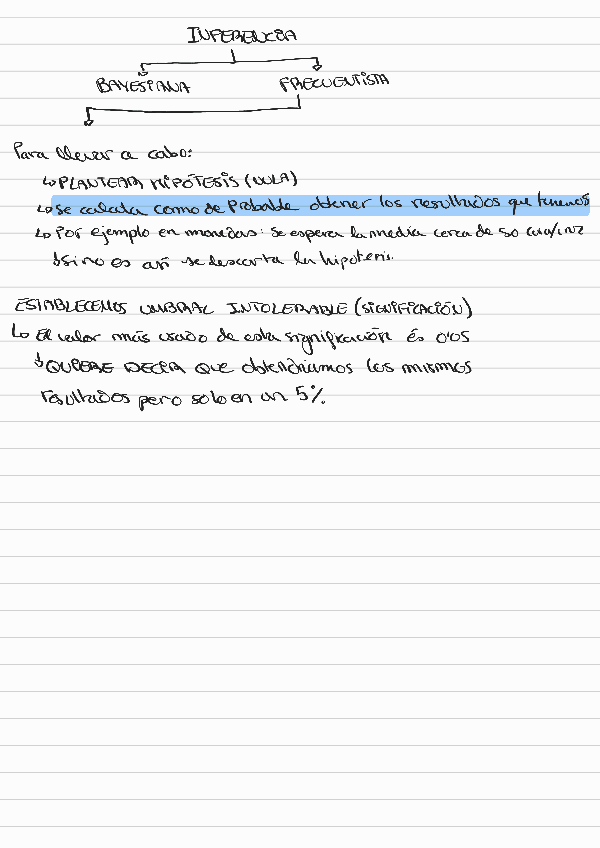 INFERENCIA
BAYESIANA FRECUENTISTA
Para llevar a cabo:
↳ PLANTEAR HIPÓTESIS (NULA)
↳ se calcula como de Probable obtener los resultados que tenemos
↳ Por ejemplo en monedas: se espera la media cerca de 50 cara/cruz
↳ si no es así se descarta la hipótesis.
ESTABLECEMOS UMBRAL INTOLERABLE (SIGNIFICACIÓN)
↳ El valor más usado de esta significación és 0'05
↳ QUIERE DECIR QUE obtendríamos los mismos
resultados pero solo en un 5%.